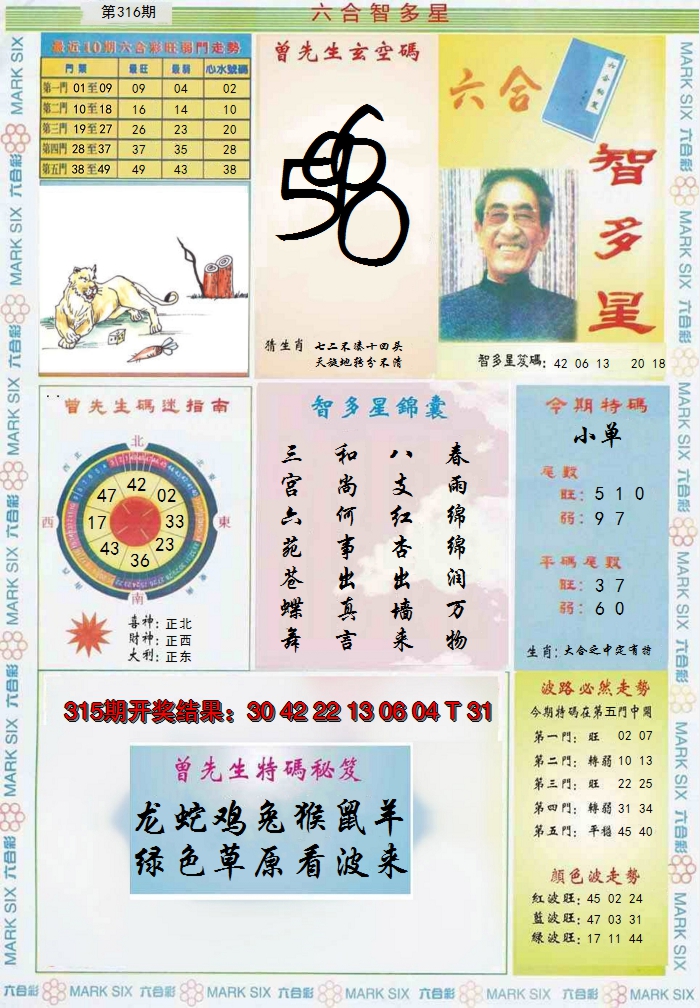 第316期
六合智多星
最近10期六合彩旺弱門走勢
門類 最旺 最弱 心水號碼
第一門 01至09 09 04 02
第二門 10至18 16 14 10
第三門 19至27 26 23 20
第四門 28至37 37 35 28
第五門 38至49 49 43 38
曾先生玄空碼
猜生肖 七二不凑十四头
天旋地转分不清
六合
智多星
智多星笈碼: 42 06 13 20 18
曾先生碼迷指南
北
西 東
南
42
47 02
17 33
43 23
36
喜神: 正北
財神: 正西
大利: 正东
智多星錦囊
春雨绵绵润万物
八支红杏出墙来
和尚何事出真言
三宫六苑苍蝶舞
今期特碼
小单
尾數
旺: 5 1 0
弱: 9 7
平碼尾數
旺: 3 7
弱: 6 0
生肖: 大合之中定有特
315期开奖结果: 30 42 22 13 06 04 T 31
曾先生特碼秘笈
龙蛇鸡兔猴鼠羊
绿色草原看波来
波路必然走勢
今期特碼在第五門中開
第一門: 旺 02 07
第二門: 轉弱 10 13
第三門: 旺 22 25
第四門: 轉弱 31 34
第五門: 平穩 45 40
顏色波走勢
紅波旺: 45 02 24
藍波旺: 47 03 31
綠波旺: 17 11 44
六合彩 MARK SIX